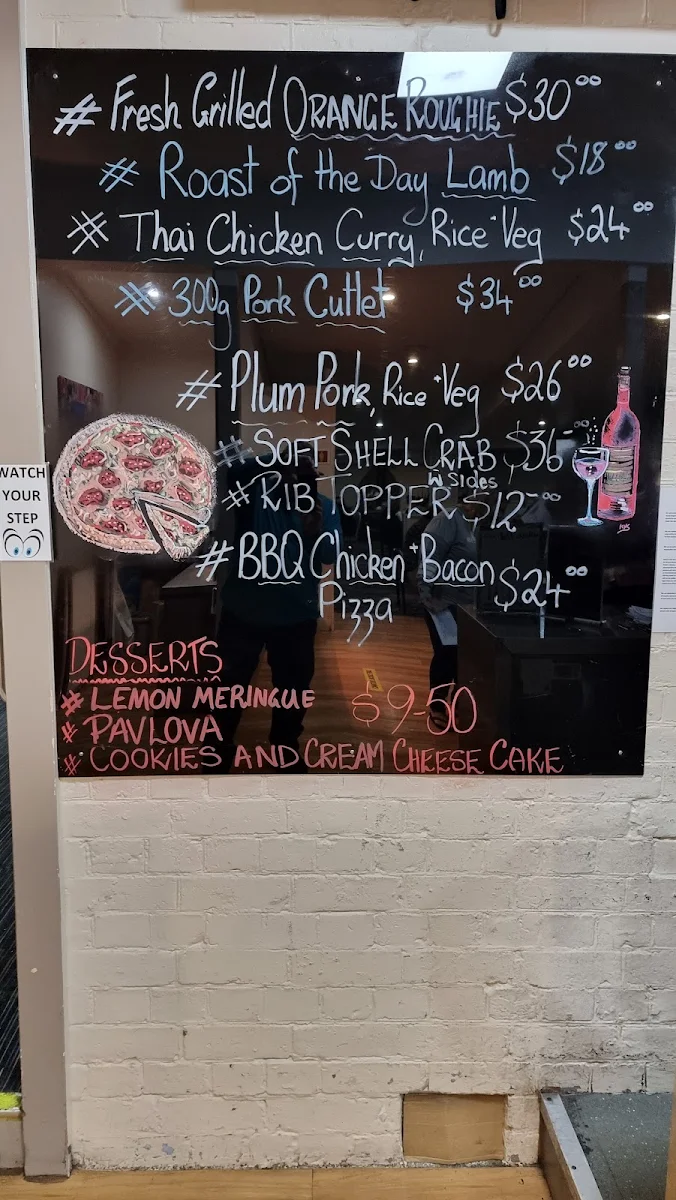 # Fresh Grilled ORANGE ROUGHIE $30.00
# Roast of the Day Lamb $18.00
# Thai Chicken Curry, Rice + Veg $24.00
# 300g Pork Cutlet $34.00
# Plum Pork, Rice + Veg $26.00
# SOFT SHELL CRAB $36-00
W Sides
# RIB TOPPER $12-00
# BBQ Chicken + Bacon $24.00
Pizza
DESSERTS
# LEMON MERINGUE $9-50
# PAVLOVA
# COOKIES AND CREAM CHEESE CAKE
WATCH
YOUR
STEP